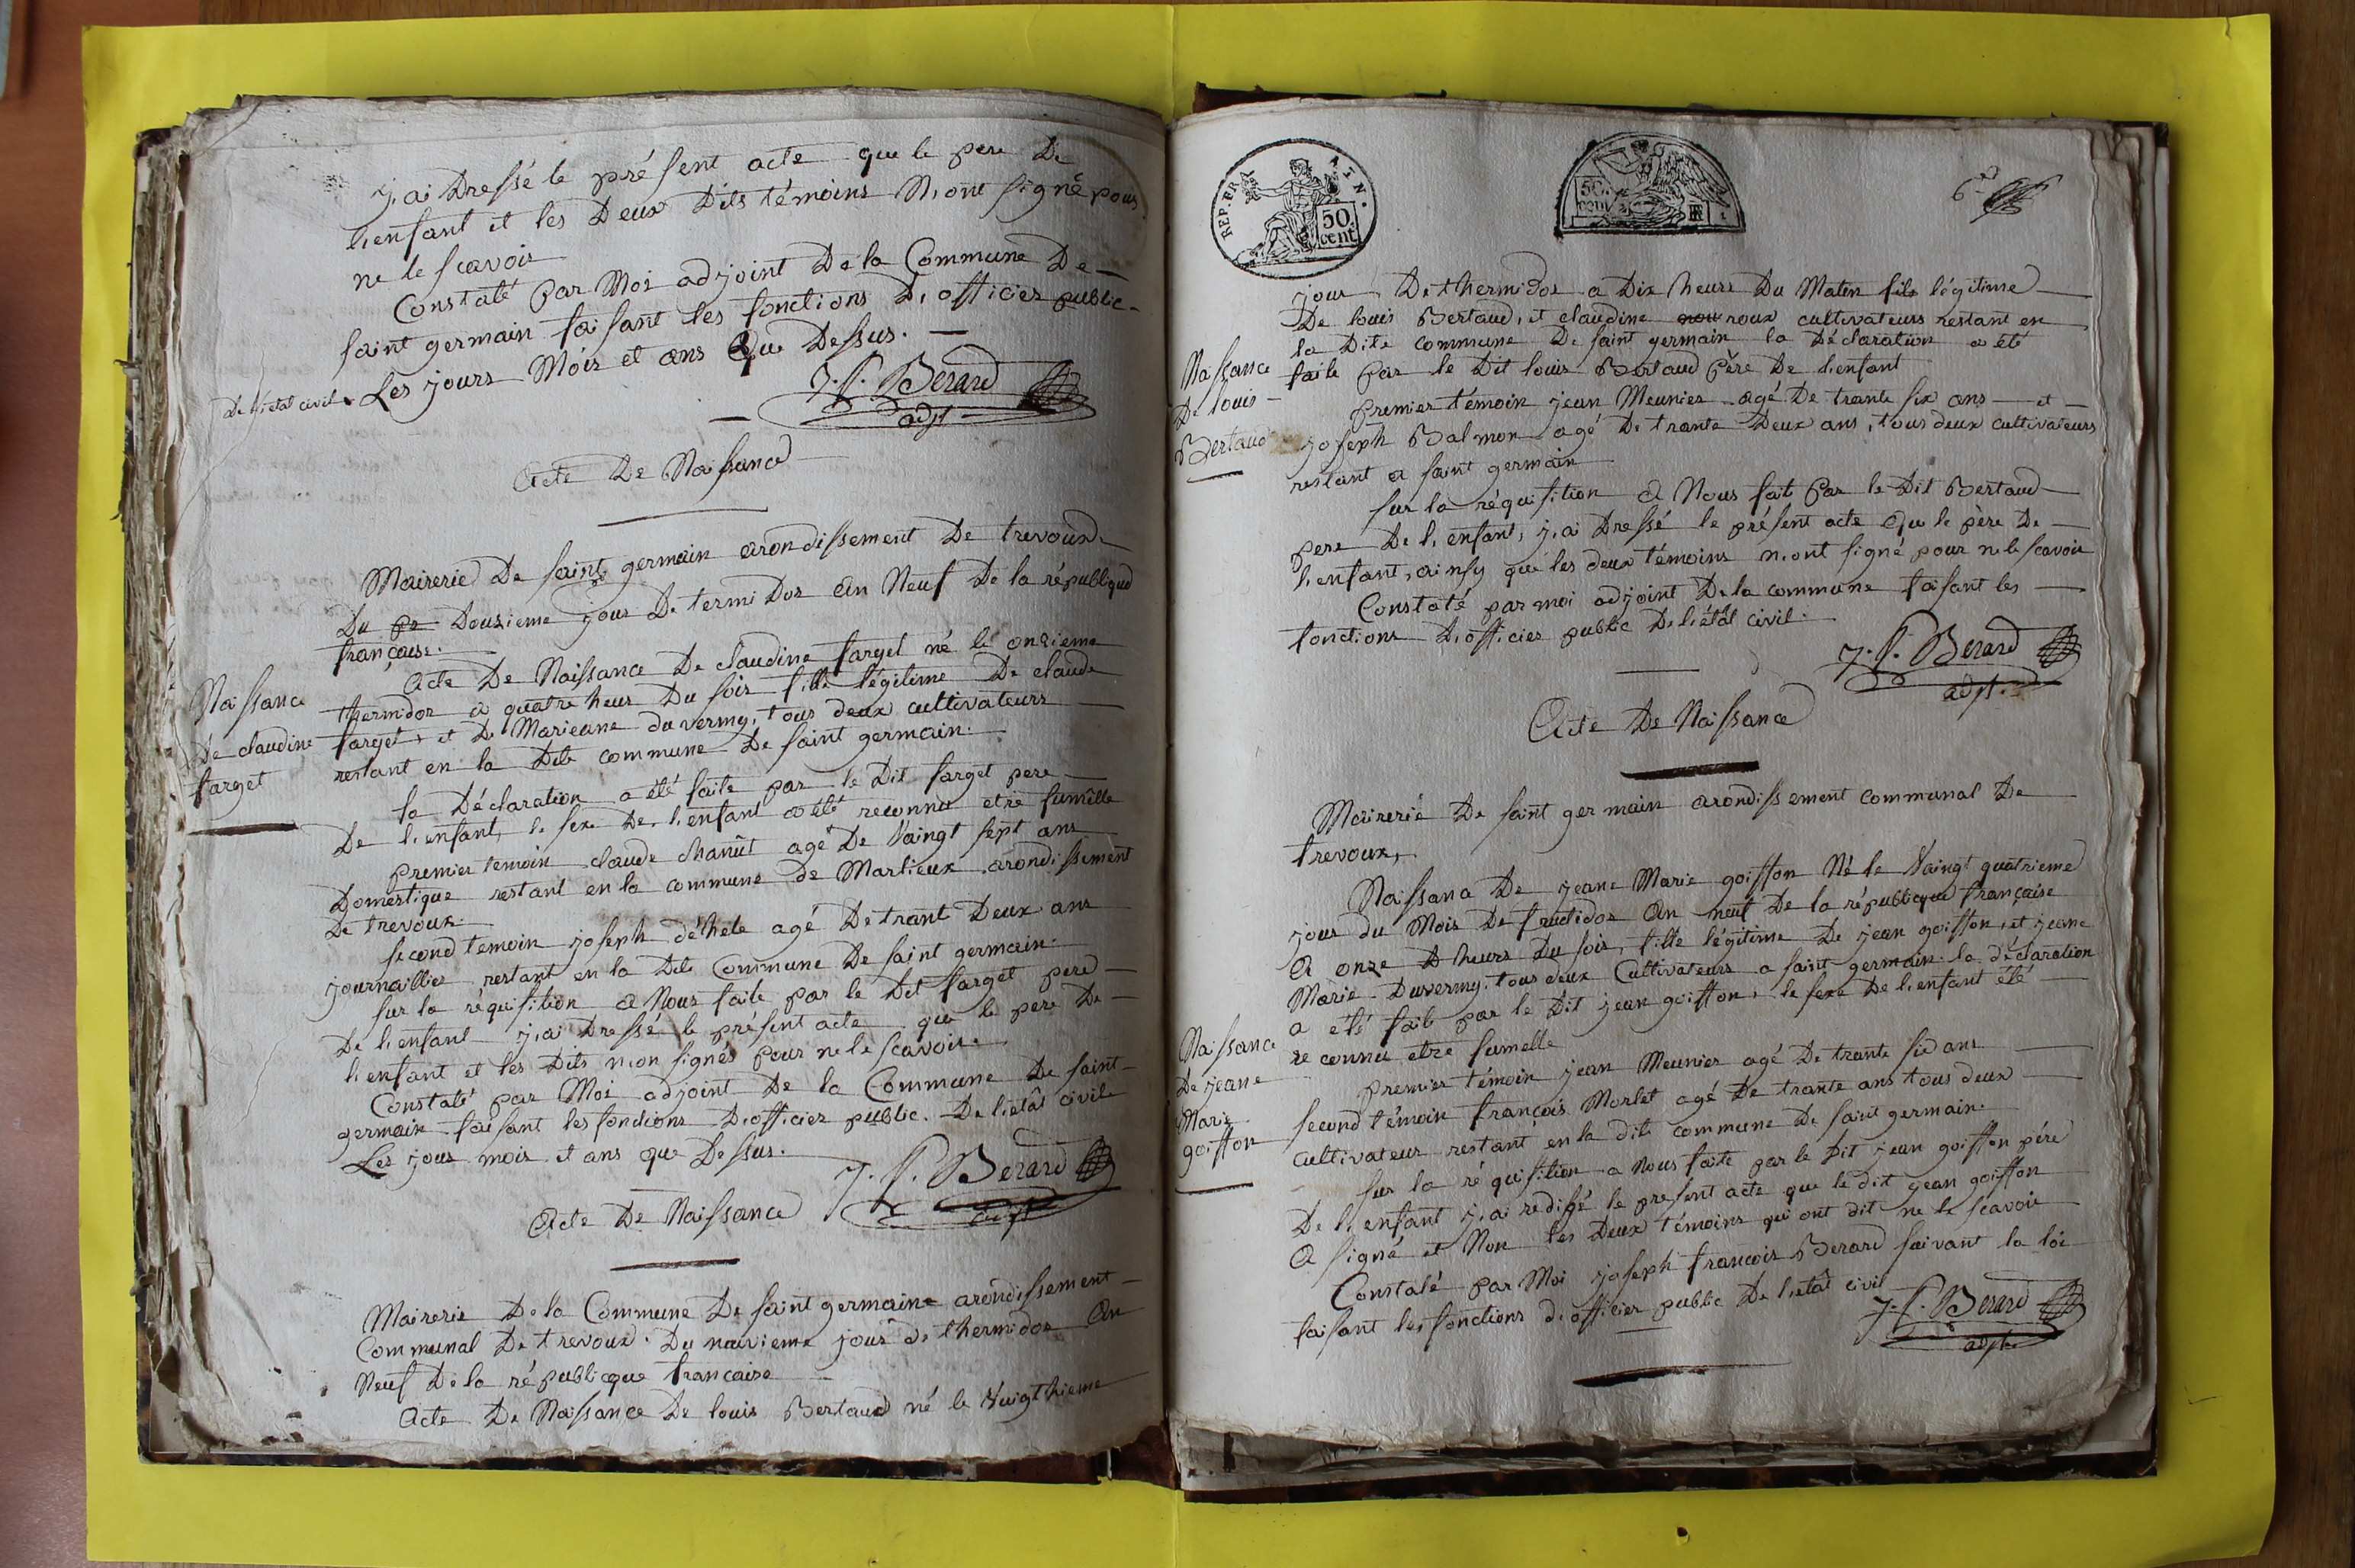 j,ai Dressé le présent acte que le pere De
l,enfant et les Deux Dits témoins N,ont signé pour
ne le scavoir
Constaté par Moi adjoint De la Commune De
saint germain faisant les fonctions D,officier public
De l,etat civil Les jours Mois et ans Que Dessus.
J. f. Berard
adjt
Acte De Naissance
Mairerie De saint germain arondissement De trevoux
Du Douzieme jour De termidor An Neuf De la républiqued
française.
Naissance
De claudine
farget
Acte De Naissance De claudine farget né le onzieme
thermidor a quatre heur Du soir fille légitime De claude
farget, et De Marieane duvermy, tous deux cultivateurs
restant en la Dite commune De saint germain.
la Déclaration a été faite par le Dit farget pere
De l,enfant, le sexe De l,enfant a été reconnu etre fumelle
premier temoin claude chanut agé De Vaingt sept ans
Domestique restant en la commune de Marlieux arondissement
De trevoux.
second temoin joseph agé De trant Deux ans
journaillier restant en la Dite Commune De saint germain.
sur la réquisition a Nous faite par le Dit farget pere
De l,enfant j,ai Dressé le présent acte que le pere De
l,enfant et les Dits n,on signés pour ne le scavoire
Constaté par Moi adjoint De la Commune De saint
germain faisant les fonctions D,officier public De l,etât civile
Les jour mois et ans que Dessus.
J. f. Berard
adjt
Acte De Naissance
Mairerie De la Commune De saint germaine arondissement
Communal De trevoux. Du neuvieme jour de thermidor An
Neuf De la républicque francaise
Acte De Naissance De louis Bertaud né le Vuigthieme
REP. FRA. 50. cent. ATN.
50. cent.
6
jour De thermidor a Dix heurs Du Maten fils légitime
De louis Bertaud, et claudine roux cultivateurs restant en
la Dite commune De saint germain la Déclaration a été
faite par le Dit louis Bertaud Père De l,enfant
Naissance
De louis
Bertaud
premier témoin jean Meunier agé De trante six ans et
joseph Balmon agé De trante Deux ans, tous deux cultivateurs
restant a saint germain
sur la réquisition a Nous fait par le Dit Bertaud
pere De l,enfant, j,ai Dressé le présent acte Que le père De
l,enfant, ainsy que les deux témoins n,ont signé pour ne le scavoir
Constaté par moi adjoint De la commune faisant les
fonctions D,officier public De l,étât civil.
J. f. Berard
adjt.
Acte De Naissance
Mairerie De saint germain arondissement communal De
trevoux,
Naissana De jeane Marie goiffon Né le Vaingt quatrieme
jour du Mois De fructidor An neuf De la républicque française
a onze heurs Du soir, fille légitime De jean goiffon, et jeane
Marie Duvermy, tous deux Cultivateurs a saint germain la déclaration
a été faite par le Dit jean goiffon, le sexe De l,enfant été
reconnu etre fumelle
Naissance
De jeane
Marie
goiffon
premier témoin jean Meunier agé De trante six ans
second témoin françois Morlet agé De trante ans tous deux
cultivateur restant en la dite commune De saint germain.
sur la réquisition a Nous faite par le Dit jean goiffon pére
De l,enfant j,ai redigé le present acte que le dit jean goiffon
A signé et Non les Deux témoins qui ont dit ne le scavoir
Constaté par Moi joseph francois Berard suivant la loi
faisant les fonctions d,officier public De l,etât civil
J. f. Berard
adjt